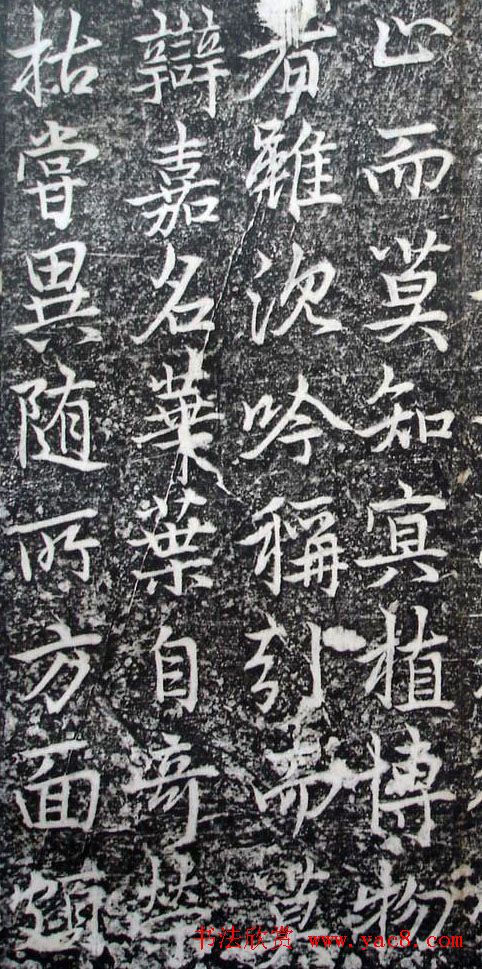 止而莫知冥植博物
者雖沈吟稱引而莫
辯嘉名華葉自奇榮
枯嘗異随所方面頗
书法欣赏 www.yac8.com